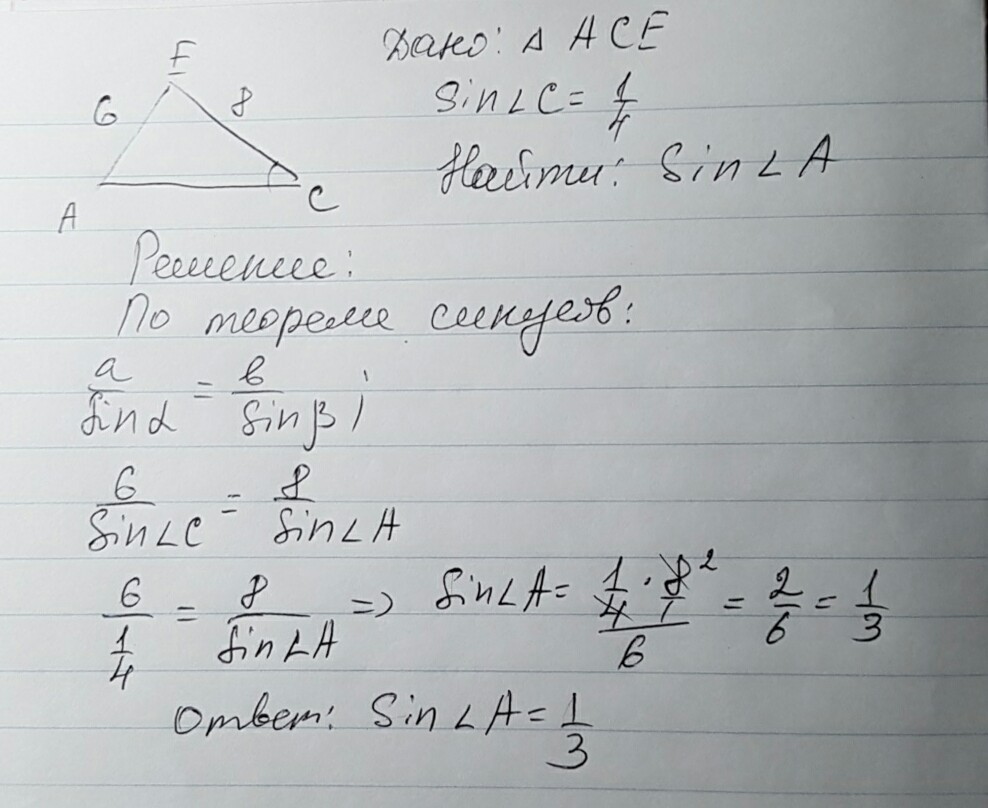 E
6
8
A
C
Дано: △ ACE
Sin∠C = 1/4
Найти: Sin∠A
Решение:
По теореме синусов:
a/Sinα = b/Sinβ ;
6/Sin∠C = 8/Sin∠A
6/(1/4) = 8/Sin∠A => Sin∠A = (1/4 · 8/1 ²)/6 = 2/6 = 1/3
Ответ: Sin∠A = 1/3